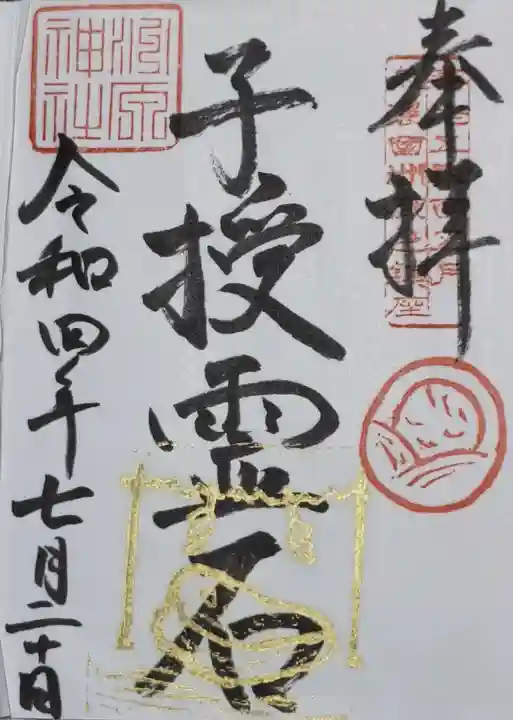 奉拝
子授霊石
令和四年七月二十日
河原
神社